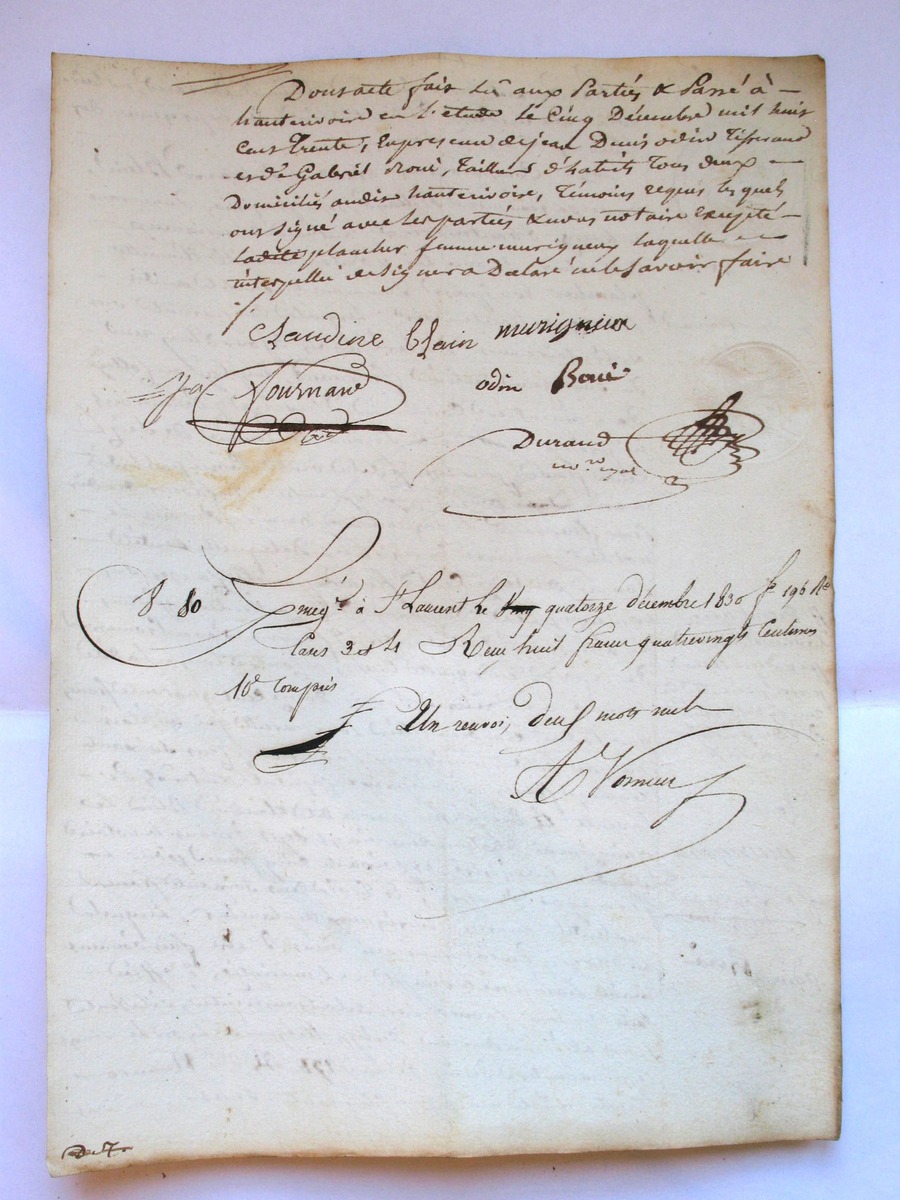 Dont acte fait lu aux Parties & Passé à
hauterivoire en l'étude le Cinq Décembre mil huit
Cent trente, En presence de jean Denis odin Tisserand
et Sr Gabriel Roué, Tailleur d'habits tous deux
Domiciliés audit hauterivoire, Témoins requis lesquels
ont signé avec les parties & nous notaire Excepté
ladite plancher femme murigneux laquelle
interpellée de Signer a Déclaré ne le Savoir faire
Claudine Blain murigneux
fournand odin Roué
Durand
nore royal
8 - 80 Enregé à St Laurent le quatorze décembre 1830 fo 196 Ro
Cases 3 & 4 Reçu huit francs quatrevingts Centimes
10e Compris
Un renvoi, deux mots nuls